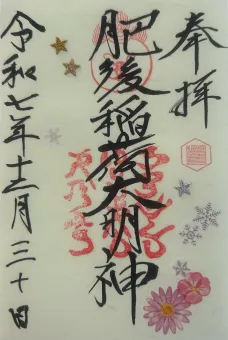 奉拝
肥後稲荷大明神
令和七年十二月三十日